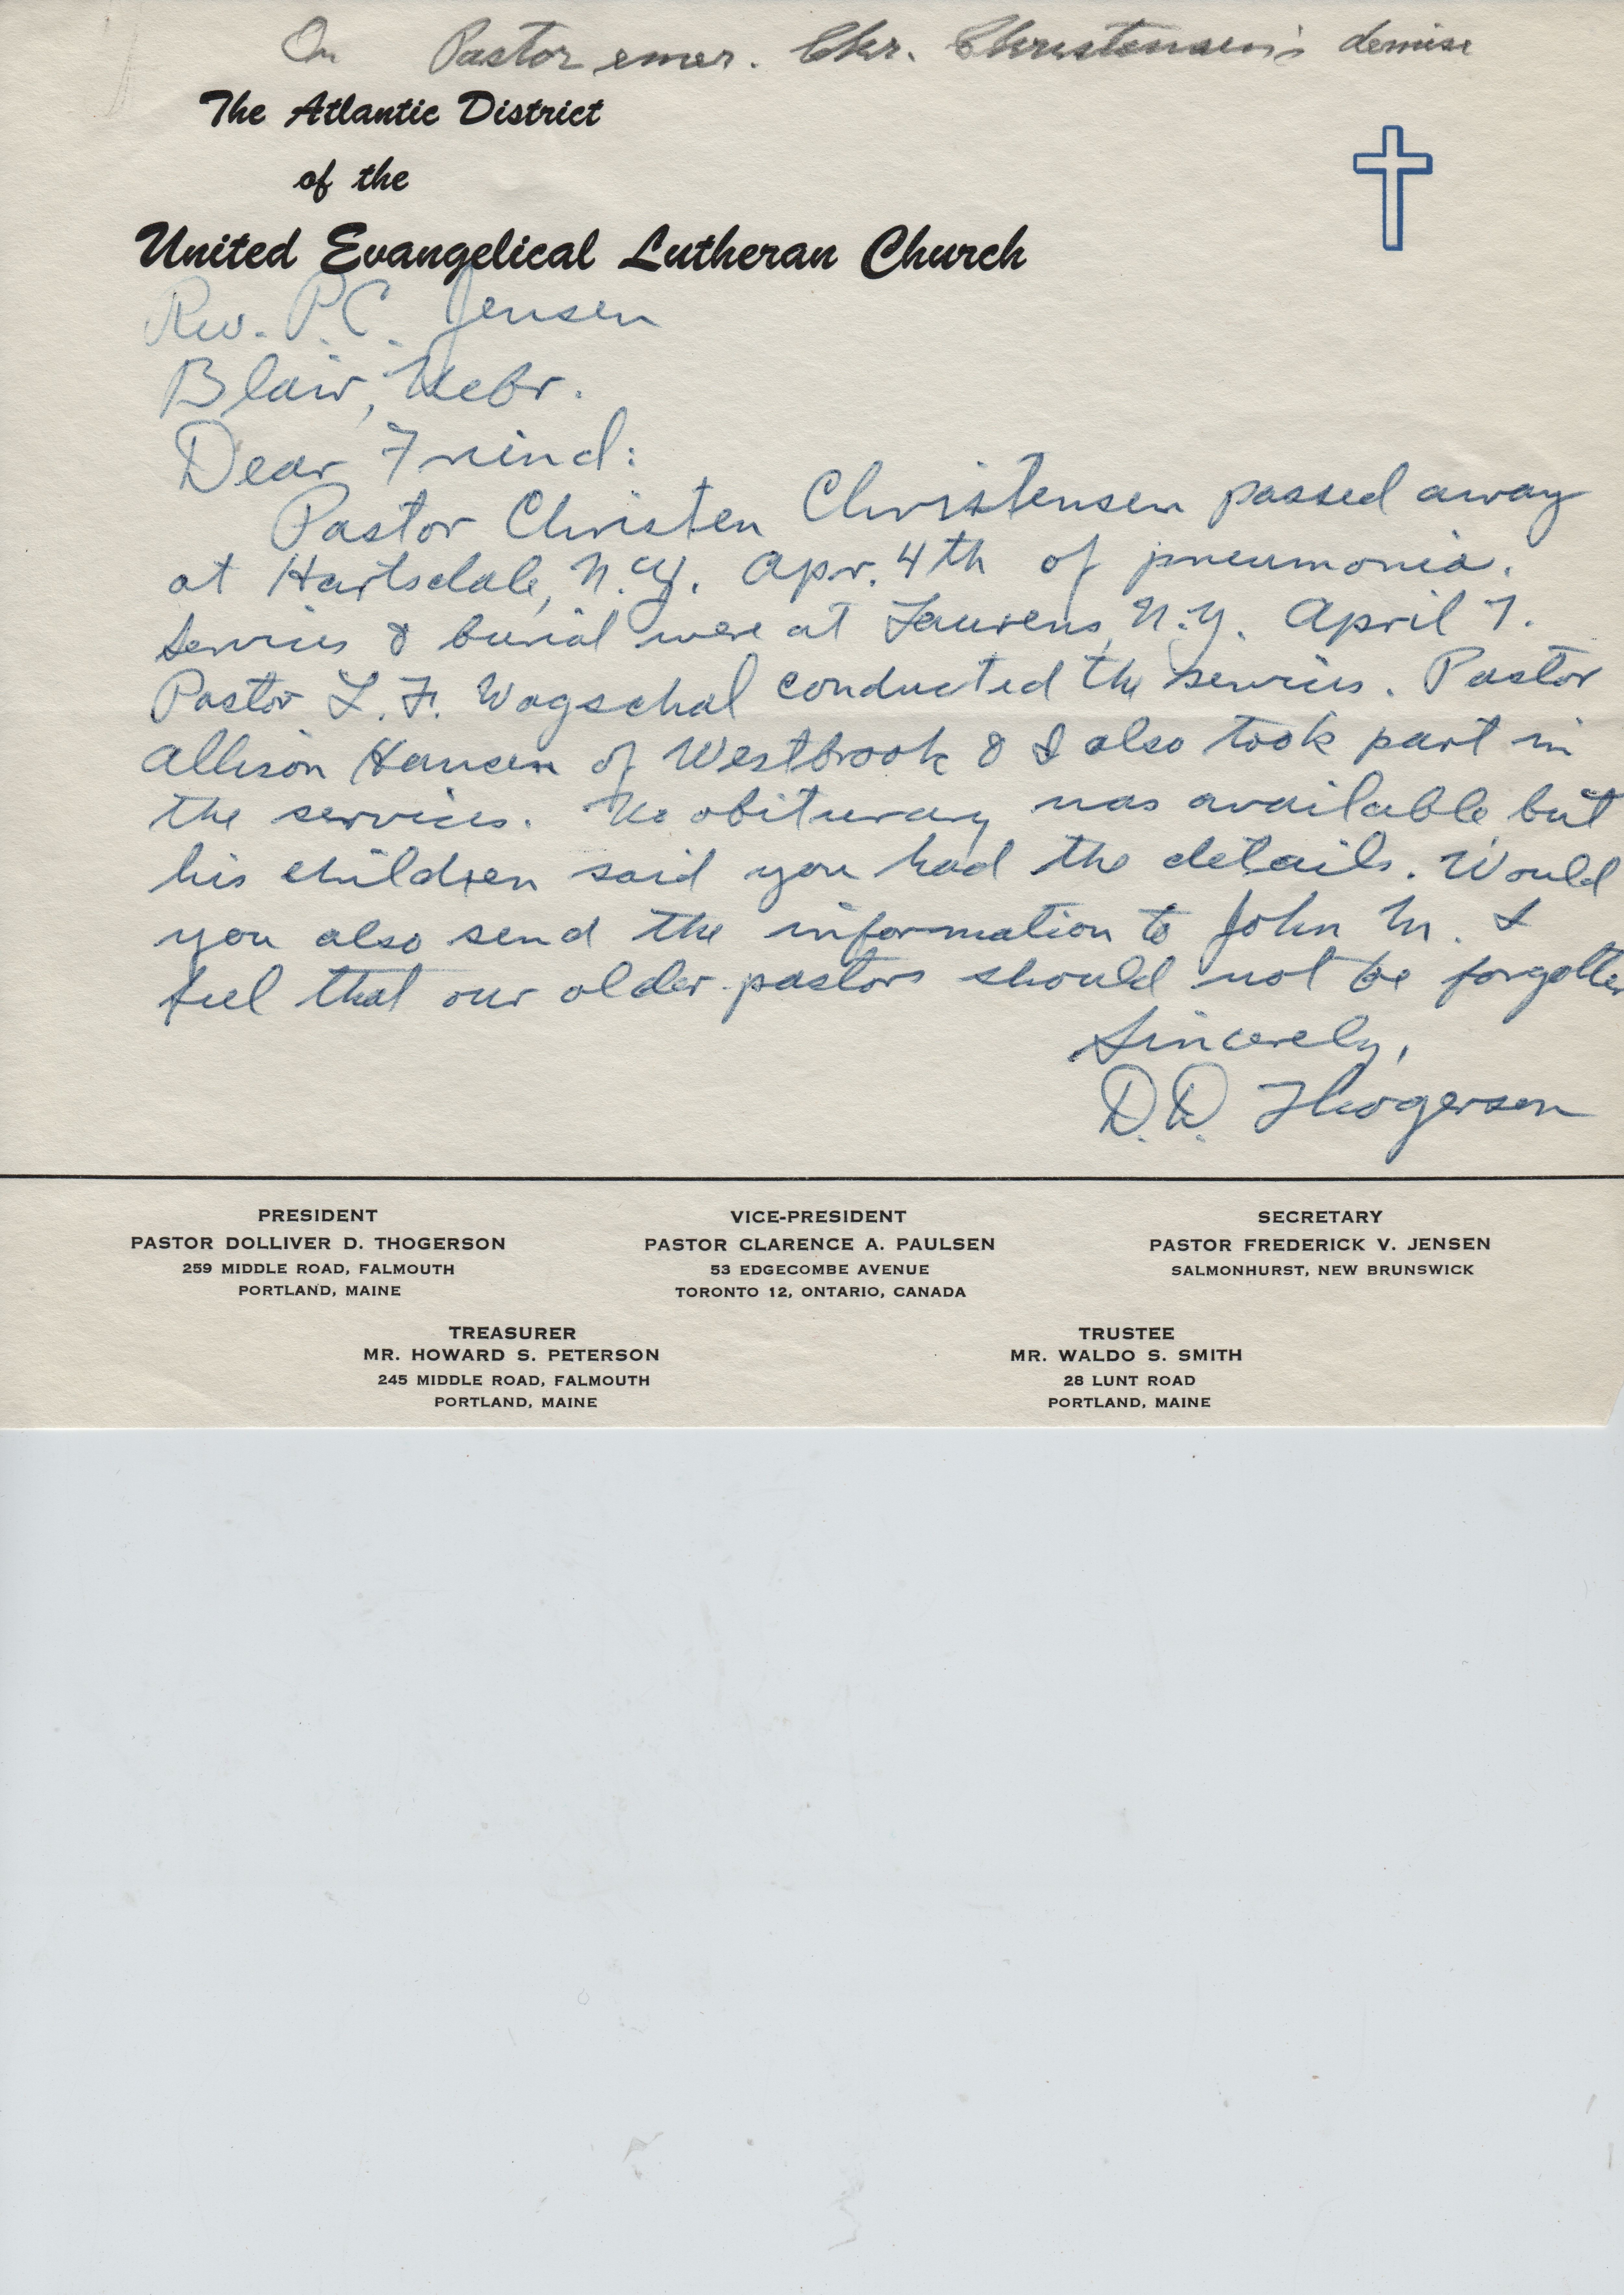 On Pastor emer. Chr. Christensen's demise
The Atlantic District
of the
United Evangelical Lutheran Church
Rev. P.C. Jensen
Blair, Nebr.
Dear Friend:
Pastor Christen Christensen passed away
at Hartsdale, N.Y. Apr. 4th of pneumonia.
Services & burial were at Laurens, N.Y. April 7.
Pastor L. F. Wagschal conducted the services. Pastor
Allison Hansen of Westbrook & I also took part in
the services. No obituary was available but
his children said you had the details. Would
you also send the information to John M. I
feel that our older pastors should not be forgotten
Sincerely,
D.D. Thogerson
PRESIDENT
PASTOR DOLLIVER D. THOGERSON
259 MIDDLE ROAD, FALMOUTH
PORTLAND, MAINE
VICE-PRESIDENT
PASTOR CLARENCE A. PAULSEN
53 EDGECOMBE AVENUE
TORONTO 12, ONTARIO, CANADA
SECRETARY
PASTOR FREDERICK V. JENSEN
SALMONHURST, NEW BRUNSWICK
TREASURER
MR. HOWARD S. PETERSON
245 MIDDLE ROAD, FALMOUTH
PORTLAND, MAINE
TRUSTEE
MR. WALDO S. SMITH
28 LUNT ROAD
PORTLAND, MAINE